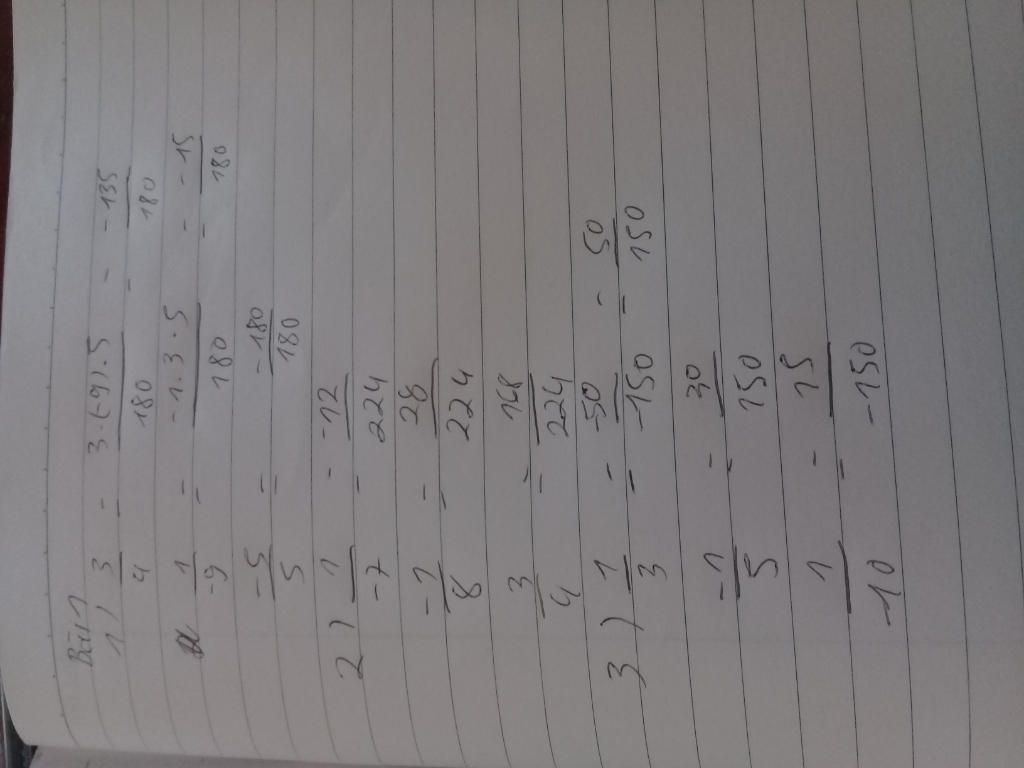 Bài 1
1) 3/4 = 3.(-9).5/180 = -135/180
1/-9 = -1.3.5/180 = -15/180
-5/5 = -180/180
2) 1/-7 = -12/224
-1/8 = 28/224
3/4 = 168/224
3) 1/3 = -50/-150 = 50/150
-1/5 = 30/150
1/-10 = 15/-150